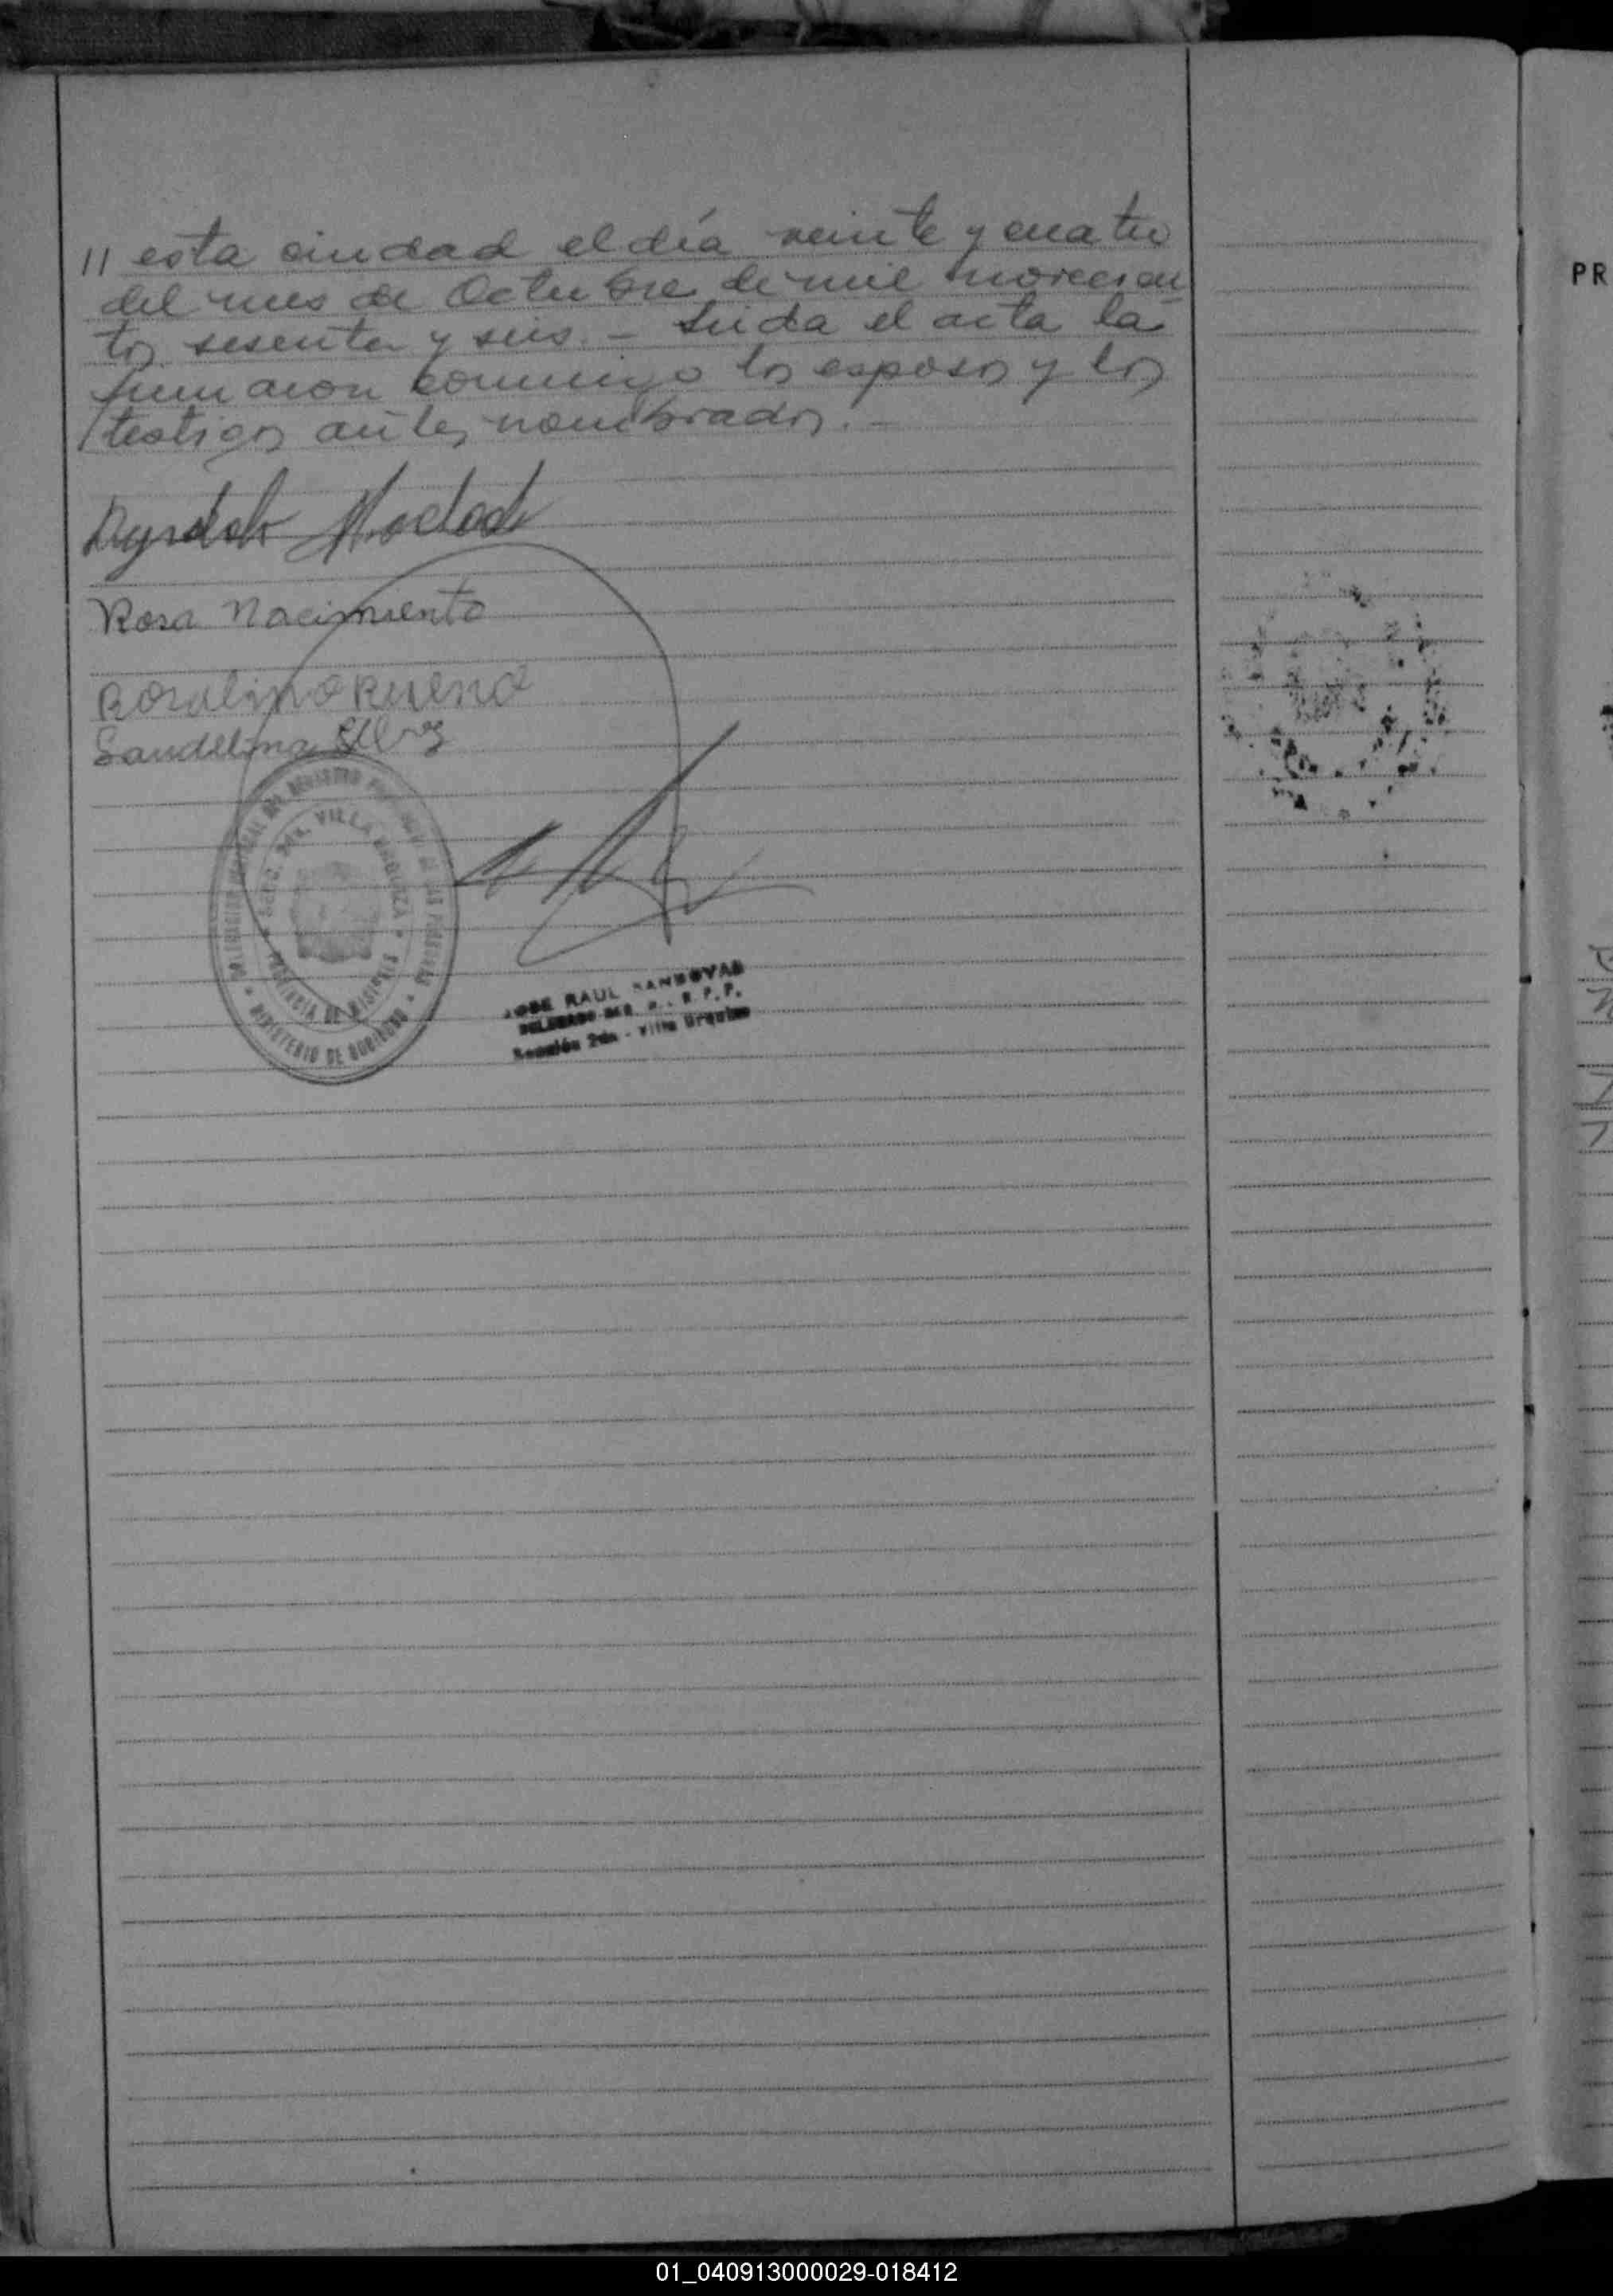 // esta ciudad el día veinte y cuatro
del mes de Octubre de mil novecien
tos sesenta y seis. - Leida el acta la
firmaron conmigo los esposos y los
testigos antes nombrados. -
Rosa Nacimiento
Rosalino Bueno
Sandelina
DELEGACION DEL REGISTRO DE LAS PERSONAS
SECC. 2da. VILLA URQUIZA
PROVINCIA DE MISIONES
MINISTERIO DE GOBIERNO
JOSE RAUL SANDOVAL
DELEGADO DEL R. P. P.
Sección 2da - Villa Urquiza
PR
01_040913000029-018412